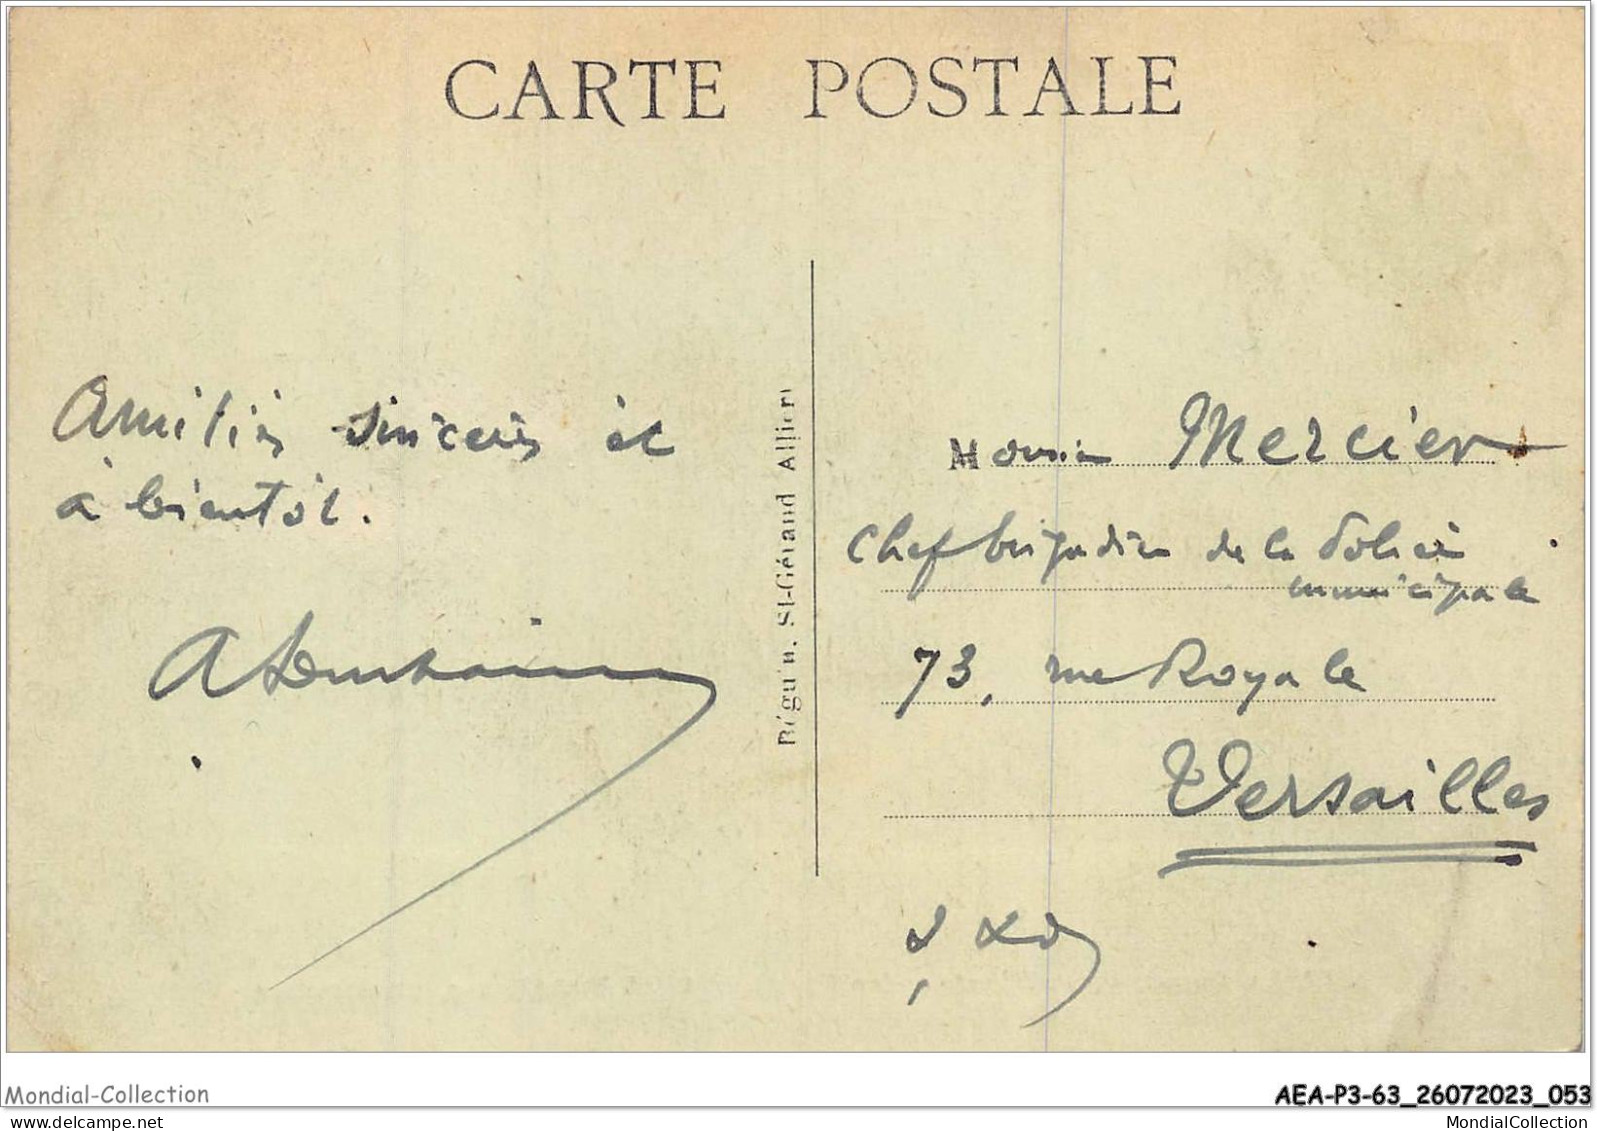 CARTE POSTALE
Amitiés sincères et
à bientôt.
Bégu'n, St-Gérand Allier
Monsieur Mercier
Chef brigadier de la Police
municipale
73, rue Royale
Versailles
Mondial-Collection
AEA-P3-63_26072023_053
delcampe.net
MondialCollection